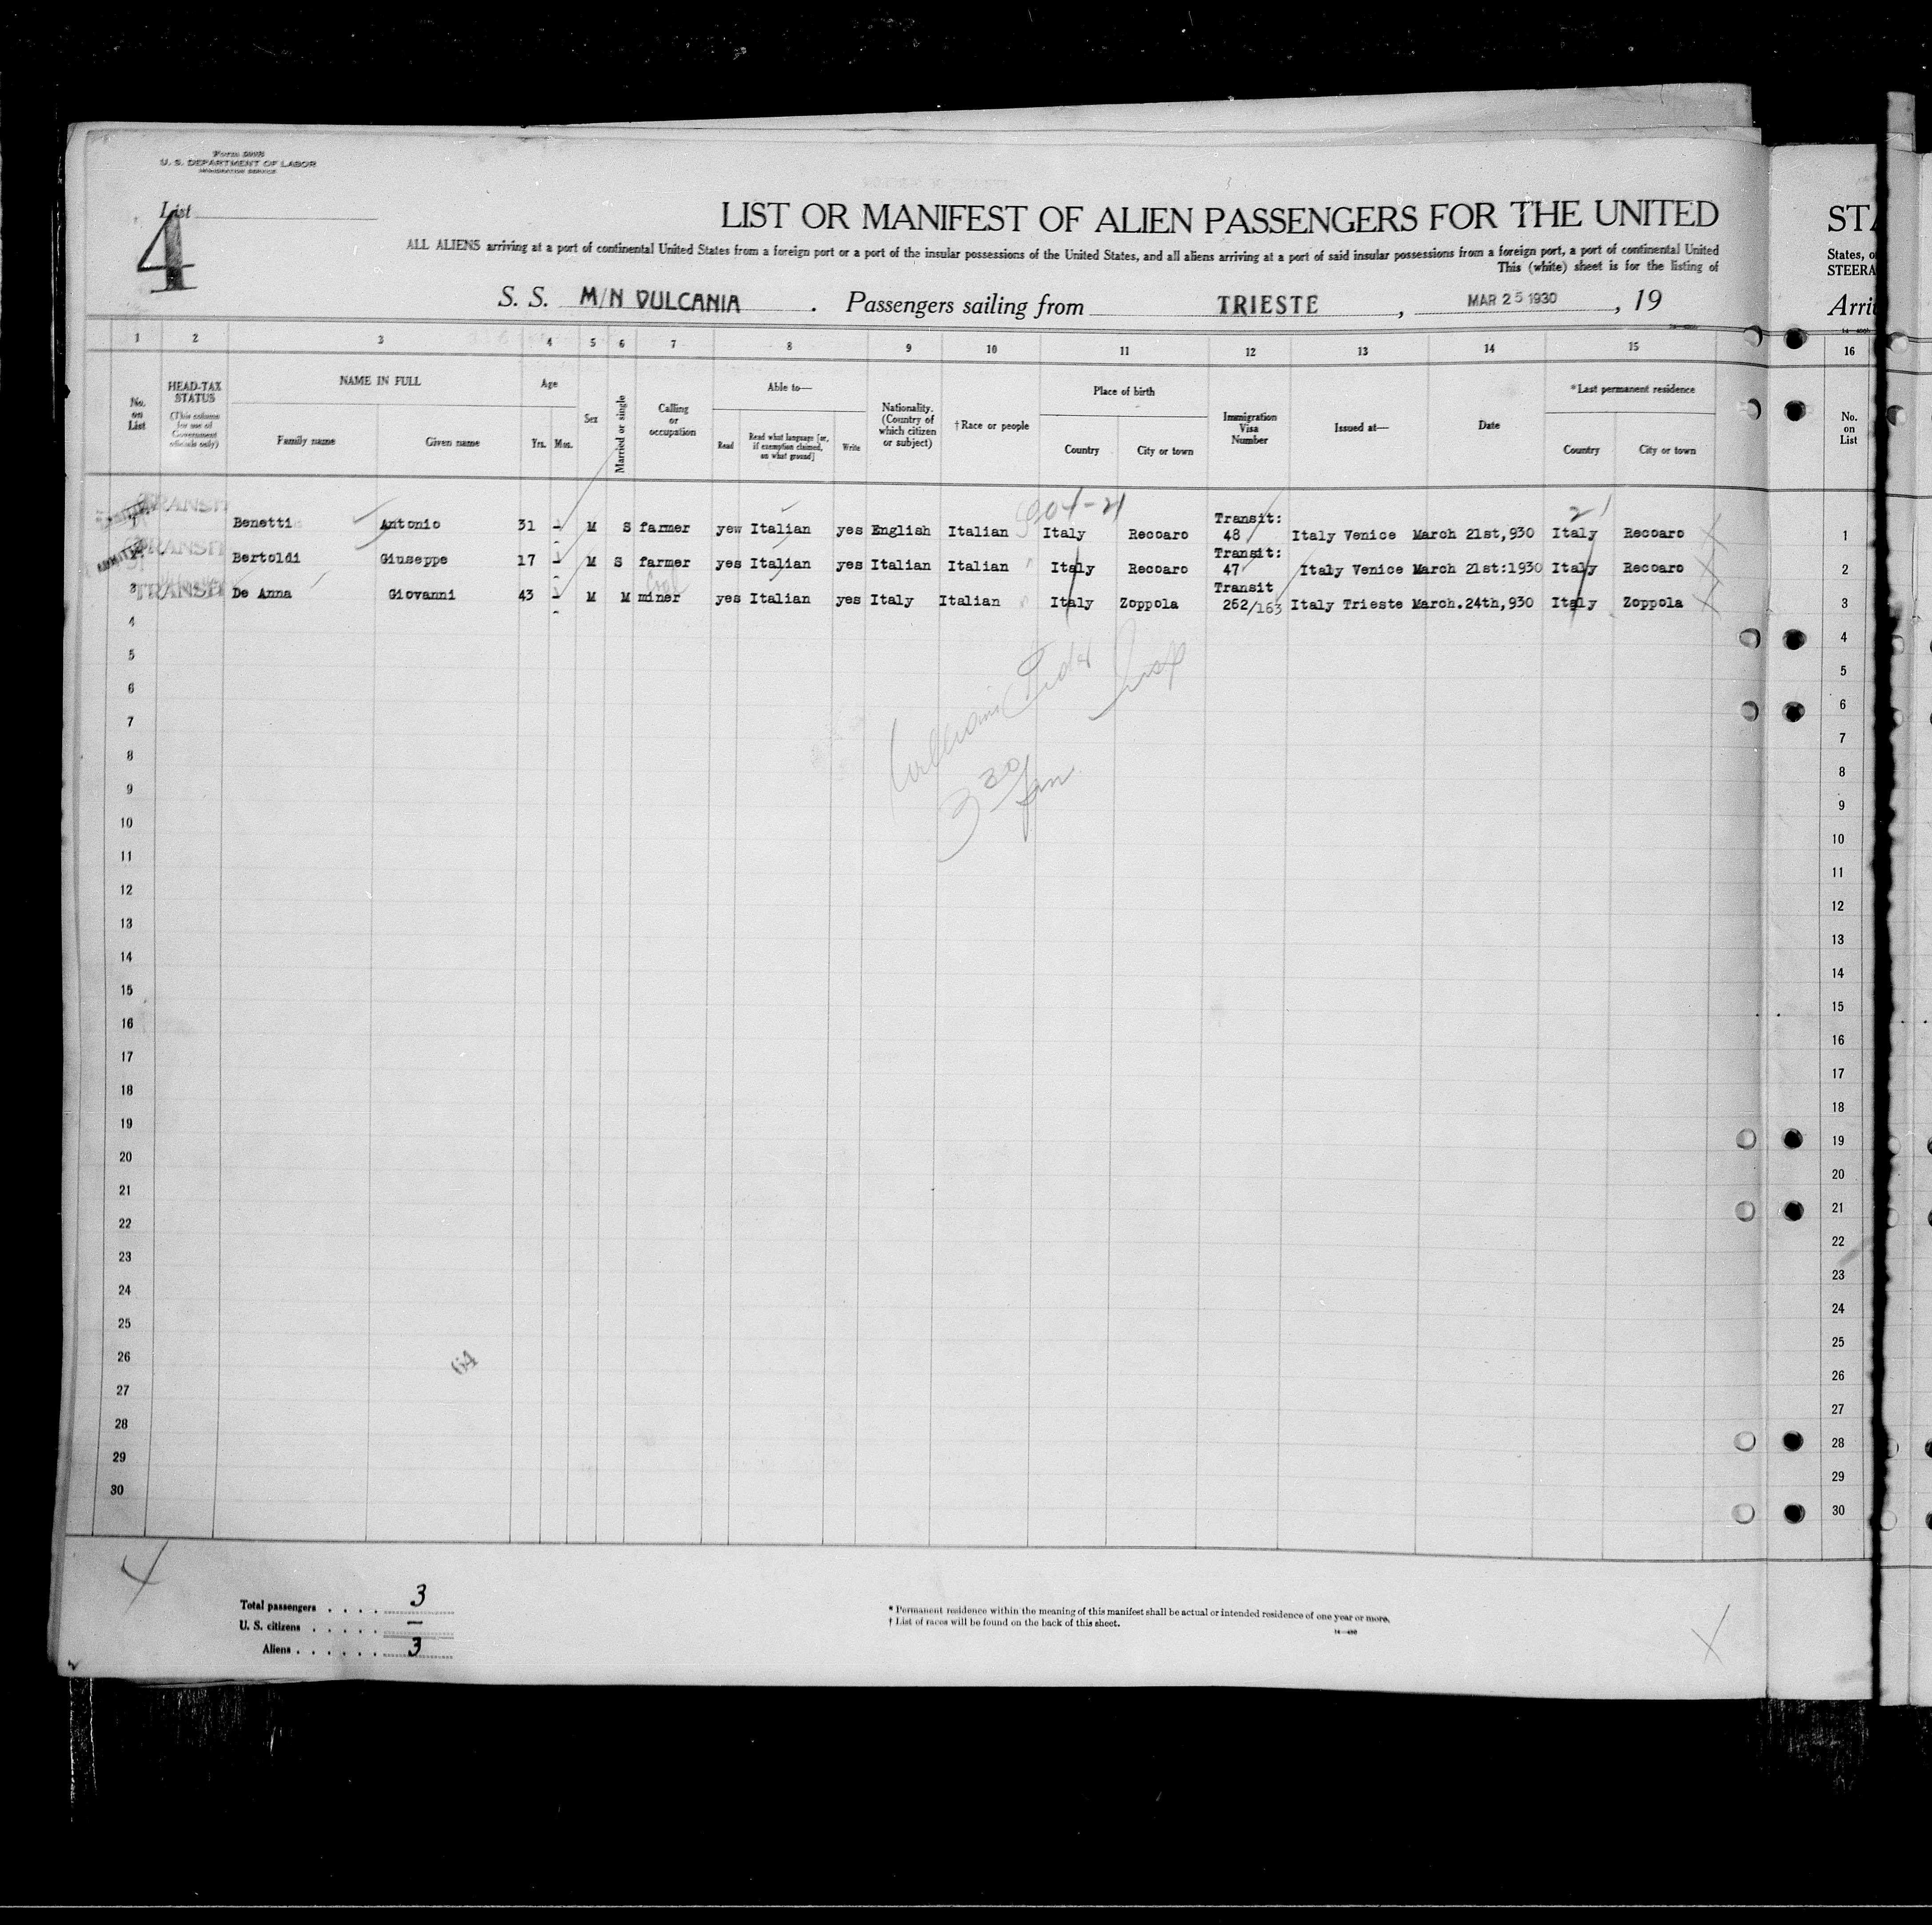 Form 500B
U. S. DEPARTMENT OF LABOR
IMMIGRATION SERVICE
List
4
LIST OR MANIFEST OF ALIEN PASSENGERS FOR THE UNITED
STA
ALL ALIENS arriving at a port of continental United States from a foreign port or a port of the insular possessions of the United States, and all aliens arriving at a port of said insular possessions from a foreign port, a port of continental United
States, o
This (white) sheet is for the listing of
STEERA
S. S. M/N VULCANIA . Passengers sailing from TRIESTE , MAR 25 1930 , 19
Arri
1 2 3 4 5 6 7 8 9 10 11 12 13 14 15 16
No. on List
HEAD-TAX STATUS (This column for use of Government officials only)
NAME IN FULL
Family name Given name
Age
Yrs. Mos.
Sex
Married or single
Calling or occupation
Able to—
Read
Read what language [or, if exemption claimed, on what ground]
Write
Nationality. (Country of which citizen or subject)
†Race or people
Place of birth
Country City or town
Immigration Visa Number
Issued at—
Date
*Last permanent residence
Country City or town
No. on List
TRANSIT
Transit:
1 Benetti Antonio 31 - M S farmer yew Italian yes English Italian Italy Recoaro 48 Italy Venice March 21st,930 Italy Recoaro 1
TRANSIT
Transit:
2 Bertoldi Giuseppe 17 - M S farmer yes Italian yes Italian Italian Italy Recoaro 47 Italy Venice March 21st:1930 Italy Recoaro 2
TRANSIT
coal
Transit
3 De Anna Giovanni 43 - M M miner yes Italian yes Italy Italian Italy Zoppola 262/163 Italy Trieste March.24th,930 Italy Zoppola 3
4 4
5 5
6 6
7 7
8 8
9 9
10 10
11 11
12 12
13 13
14 14
15 15
16 16
17 17
18 18
19 19
20 20
21 21
22 22
23 23
24 24
25 25
26 26
27 27
28 28
29 29
30 30
3 30 pm
64
Total passengers . . . . 3
U. S. citizens . . . . . —
Aliens . . . . . . 3
* Permanent residence within the meaning of this manifest shall be actual or intended residence of one year or more.
† List of races will be found on the back of this sheet.
14—400